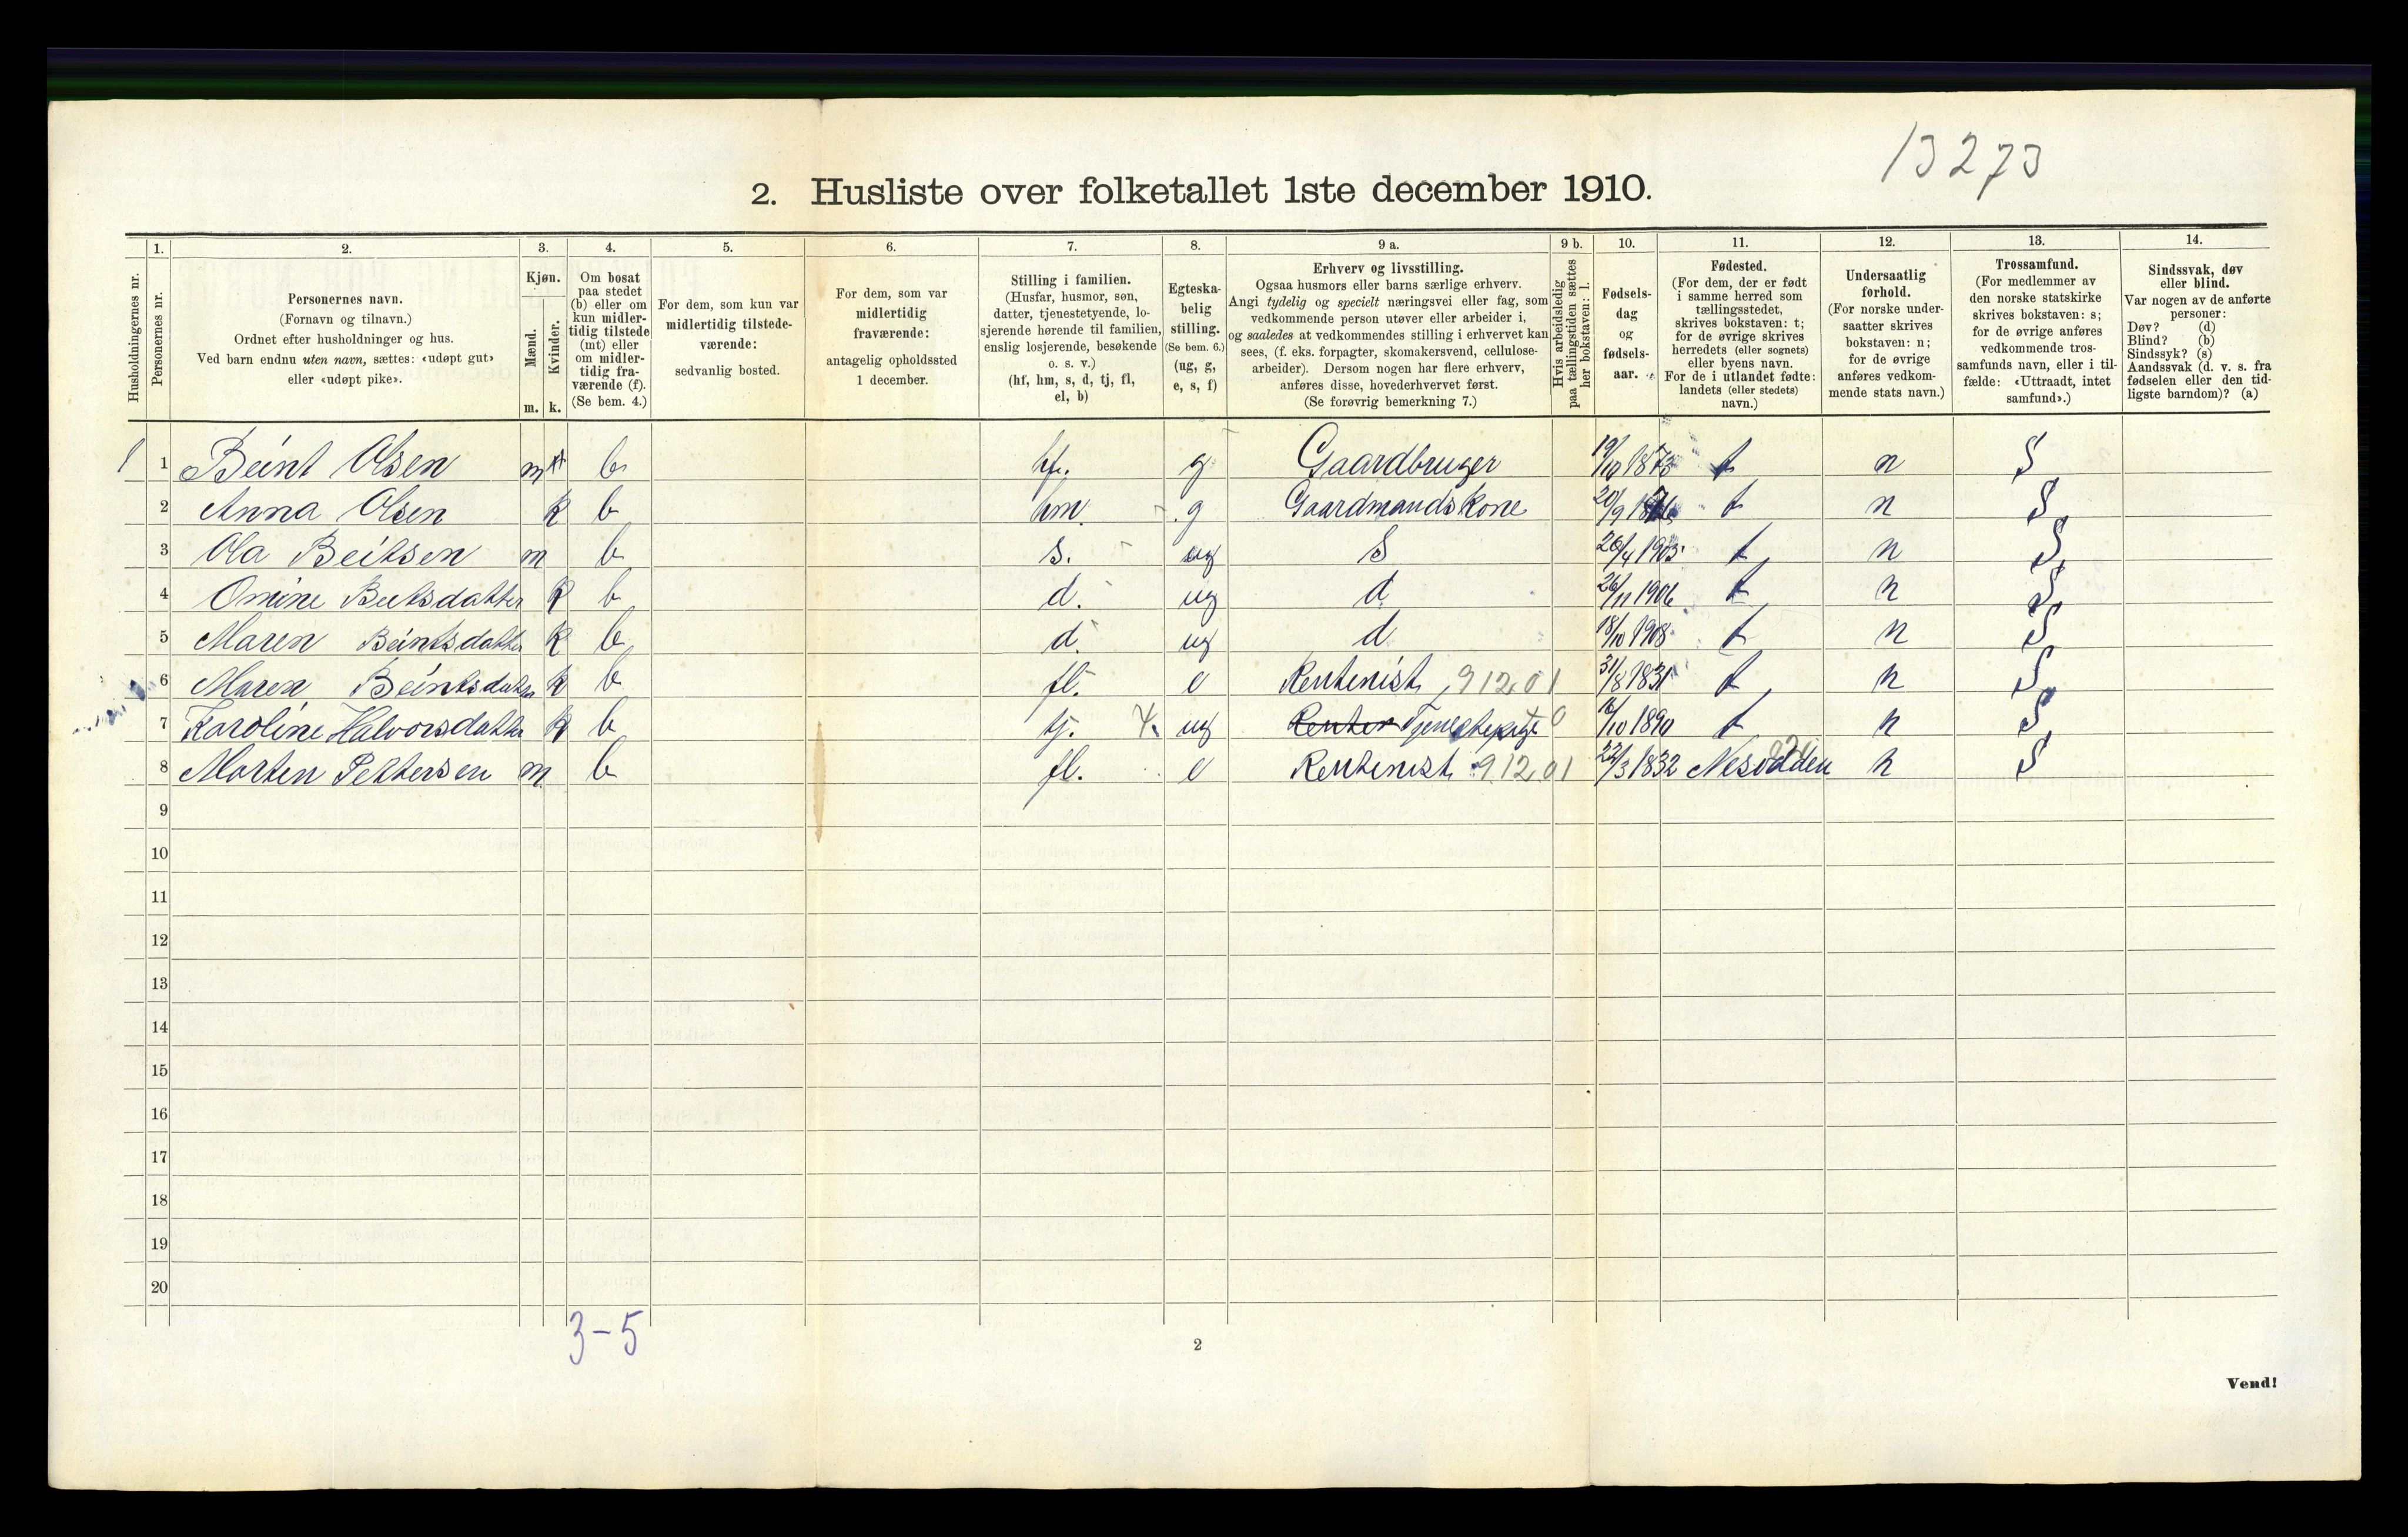 13273
2. Husliste over folketallet 1ste december 1910.
Husholdningernes nr.
1.
Personernes nr.
2.
Personernes navn.
(Fornavn og tilnavn.)
Ordnet efter husholdninger og hus.
Ved barn endnu uten navn, sættes: «udøpt gut»
eller «udøpt pike».
3.
Kjøn.
Mænd.
Kvinder.
m. k.
4.
Om bosat
paa stedet
(b) eller om
kun midler-
tidig tilstede
(mt) eller
om midler-
tidig fra-
værende (f).
(Se bem. 4.)
5.
For dem, som kun var
midlertidig tilstede-
værende:
sedvanlig bosted.
6.
For dem, som var
midlertidig
fraværende:
antagelig opholdssted
1 december.
7.
Stilling i familien.
(Husfar, husmor, søn,
datter, tjenestetyende, lo-
sjerende hørende til familien,
enslig losjerende, besøkende
o. s. v.)
(hf, hm, s, d, tj, fl,
el, b)
8.
Egteska-
belig
stilling.
(Se bem. 6.)
(ug, g,
e, s, f)
9 a.
Erhverv og livsstilling.
Ogsaa husmors eller barns særlige erhverv.
Angi tydelig og specielt næringsvei eller fag, som
vedkommende person utøver eller arbeider i,
og saaledes at vedkommendes stilling i erhvervet kan
sees, (f. eks. forpagter, skomakersvend, cellulose-
arbeider). Dersom nogen har flere erhverv,
anføres disse, hovederhvervet først.
(Se forøvrig bemerkning 7.)
9 b.
Hvis arbeidsledig
paa tællingstiden sættes
her bokstaven: l.
10.
Fødsels-
dag
og
fødsels-
aar.
11.
Fødested.
(For dem, der er født
i samme herred som
tællingsstedet,
skrives bokstaven: t;
for de øvrige skrives
herredets (eller sognets)
eller byens navn.
For de i utlandet fødte:
landets (eller stedets)
navn.)
12.
Undersaatlig
forhold.
(For norske under-
saatter skrives
bokstaven: n;
for de øvrige
anføres vedkom-
mende stats navn.)
13.
Trossamfund.
(For medlemmer av
den norske statskirke
skrives bokstaven: s;
for de øvrige anføres
vedkommende tros-
samfunds navn, eller i til-
fælde: «Uttraadt, intet
samfund».)
14.
Sindssvak, døv
eller blind.
Var nogen av de anførte
personer:
Døv? (d)
Blind? (b)
Sindssyk? (s)
Aandssvak (d. v. s. fra
fødselen eller den tid-
ligste barndom)? (a)
1 1 Beint Olsen m b hf. g Gaardbruger 19/10 1873 t n S
2 Anna Olsen k b hm. g Gaardmandskone 20/9 t n S
3 Ola Beitsen m b s. ug S 26/4 1903 t n S
4 Omine Beitsdatter k b d. ug d 26/11 1906 t n S
5 Maren Beintsdatter k b d. ug d 18/10 1908 t n S
6 Maren Beintsdatter k b fl. e Rentenist 91201 31/8 1831 t n S
7 Karoline Halvorsdatter k b tj. 4. ug Tjenestepige 0 16/10 1890 t n S
8 Morten Pettersen m b fl. e Rentenist 91201 22/3 1832 Nesodden n S
9
10
11
12
13
14
15
16
17
18
19
20
3-5
2
Vend!